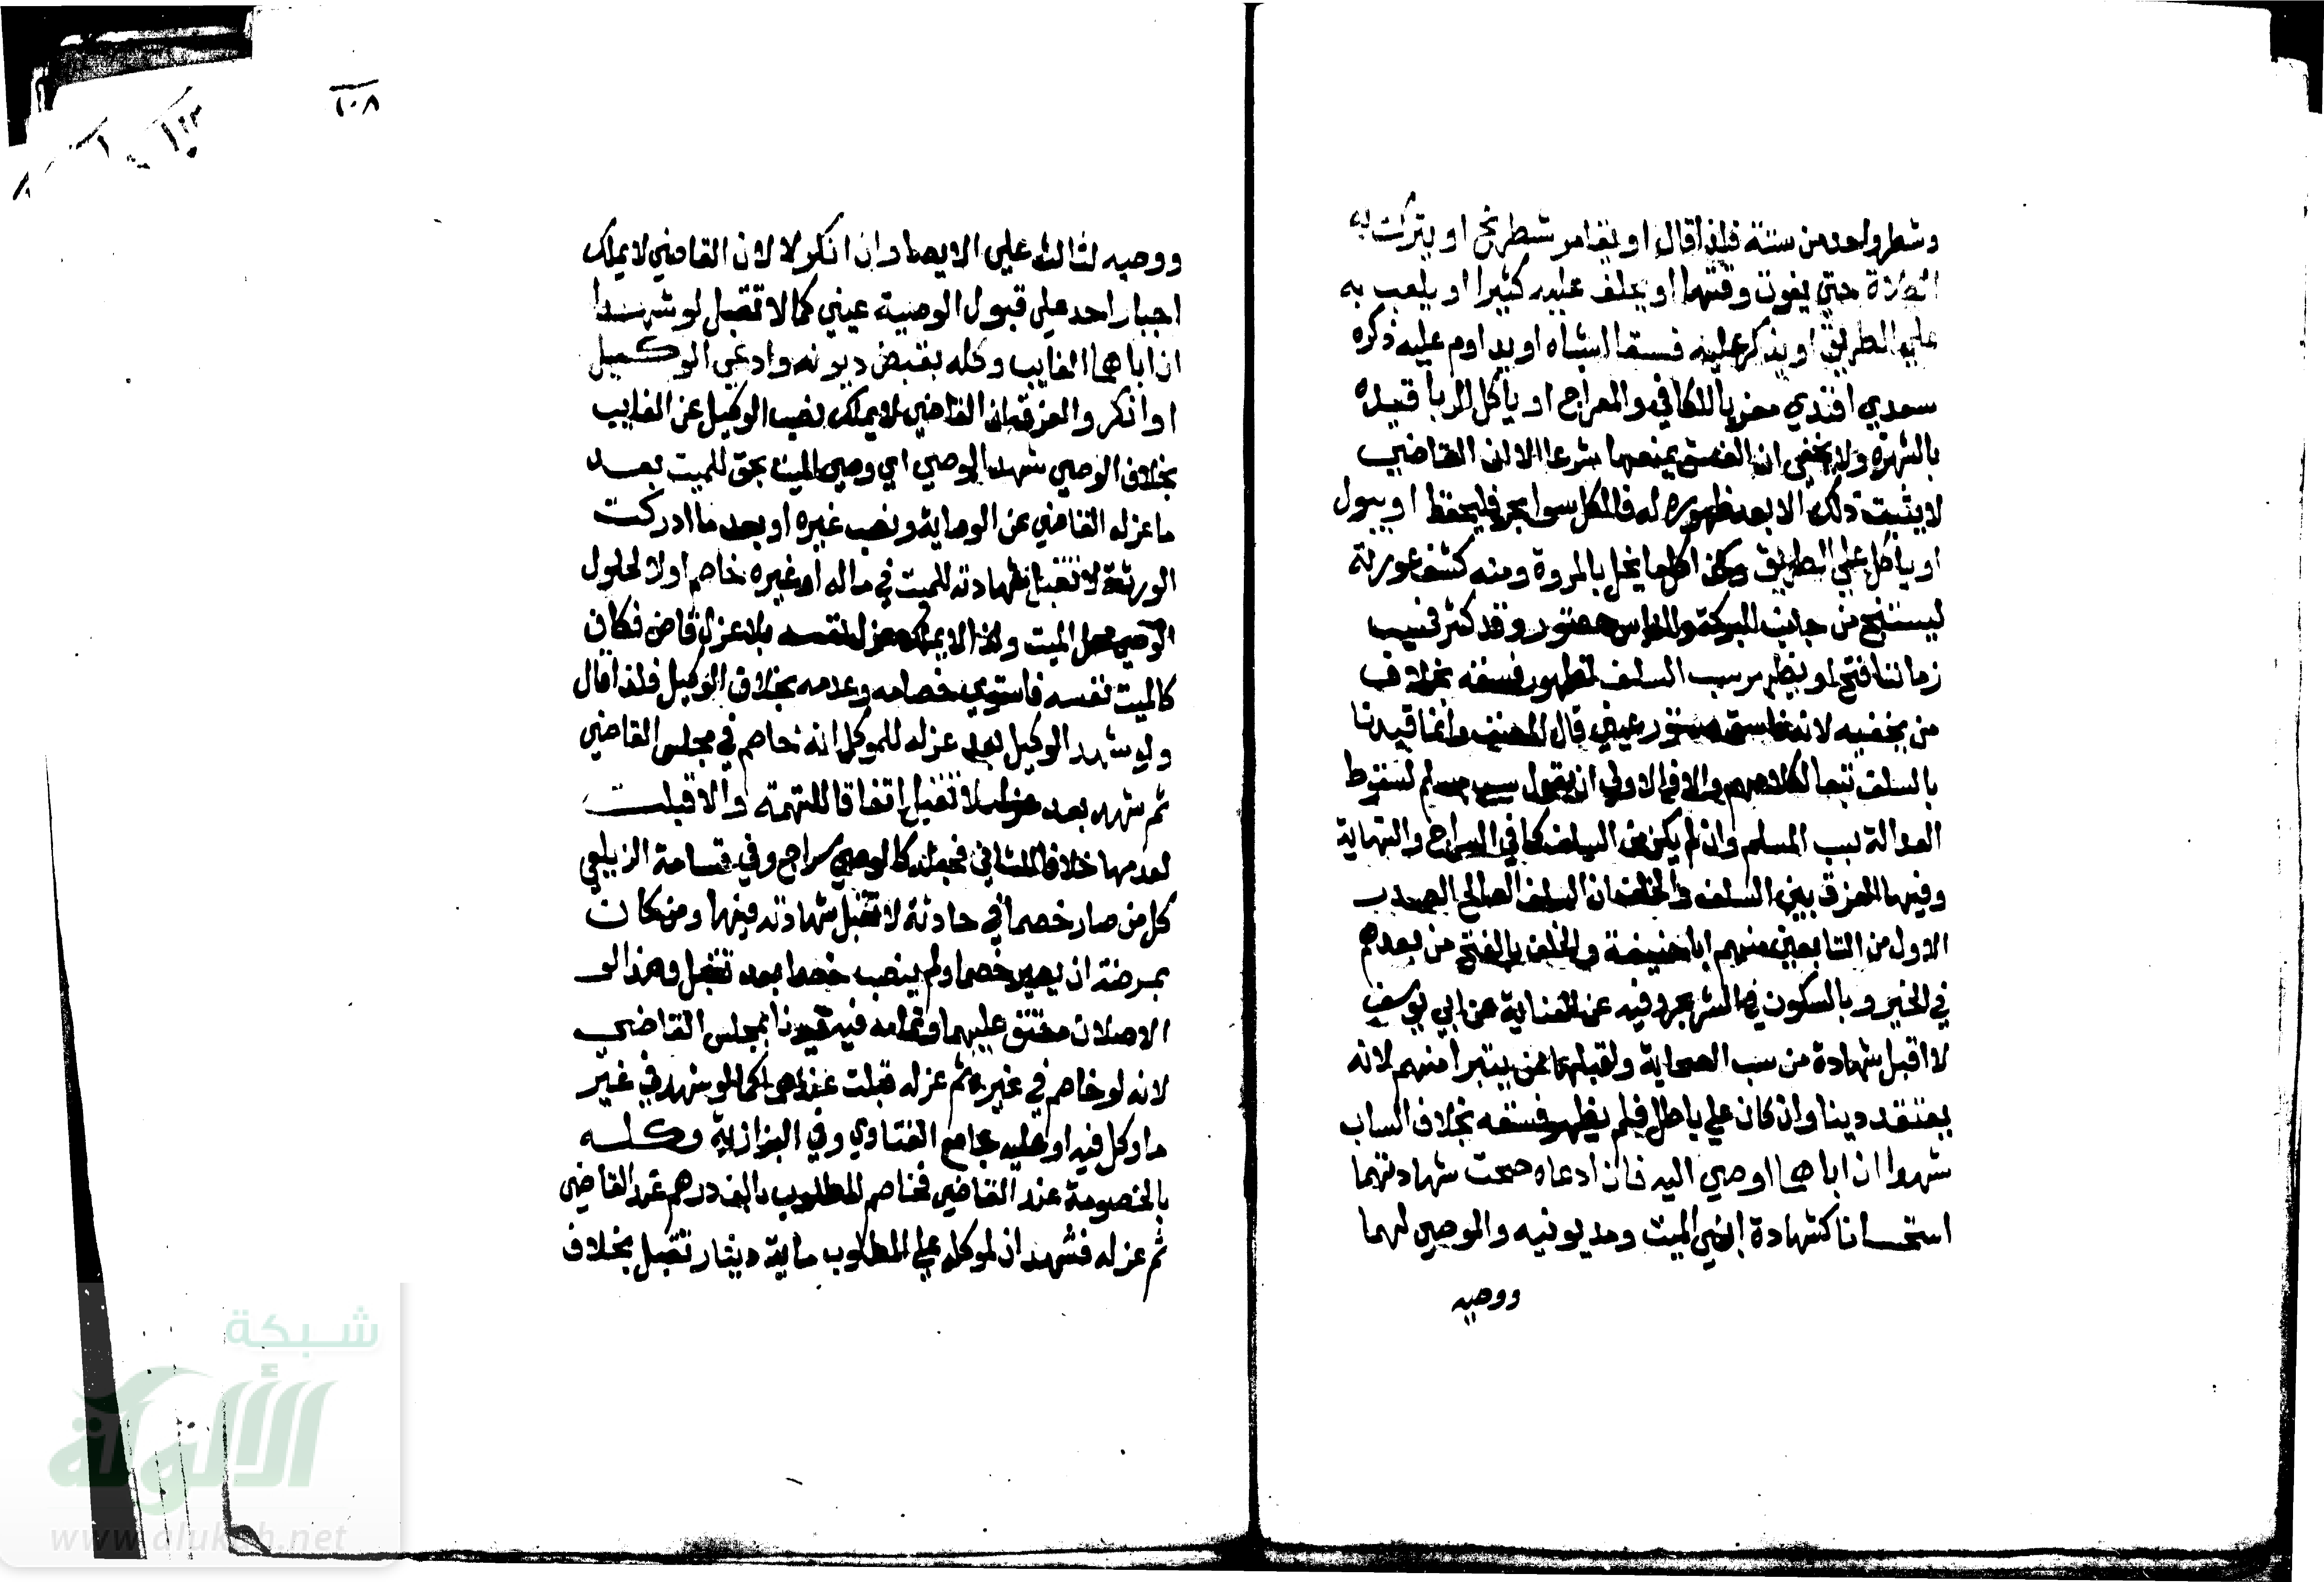 وشطر واحد من ستة فلذا قال او يقامر بشطرنج او يترك به
الصلاة حتي يفوت وقتها او يحلف عليه كثيرا او يلعب به
علي الطريق او يذكر عليه فسقا اشباه او يداوم عليه ذكره
سعدي افندي معزيا للكافي والمعراج او ياكل الربا قيده
بالشهرة ولا يخفى ان الفسق يمنعها شرعا الا ان القاضي
لا يثبت ذلك الا بعد ظهوره له فالكل سوا بحر فليحفظ او يبول
او ياكل علي الطريق وكذا كل ما يخل بالمروة ومنه كشف عورته
ليستنجي من جانب البركة والناس حضور وقد كثر في
زماننا فتح او يظهر سب السلف لظهور فسقه بخلاف
من يخفيه لانه فاسق مستور عيني قال المصنف وانما قيدنا
بالسلف تبعا لكلامهم والا فالاولي ان يقول سب مسلم لسقوط
العدالة بسب المسلم وان لم يكن من السلف كما في السراج والنهاية
وفيها الفرق بين السلف والخلف ان السلف الصالح الصدر
الاول من التابعين منهم ابا حنيفة والخلف بالفتح من بعدهم
في الخير وبالسكون في الشر بحر وفيه عن العناية عن ابي يوسف
لا اقبل شهادة من سب الصحابة واقبلها ممن يتبرا منهم لانه
يعتقد دينا وان كان علي باطل فلم يظهر فسقه بخلاف الساب
شهدا ان اباهما اوصي اليه فان ادعاه صحت شهادتهما
استحسانا كشهادة دايني الميت ومديونيه والموصي لهما
ووصيه
١٠٨
ووصيه لثالث علي الايصا وان انكر لا لان القاضي لا يملك
اجبار احد علي قبول الوصية عيني كما لا تقبل لو شهدا
ان اباهما الغايب وكله بقبض ديونه وادعي الوكيل
او انكر والفرق ان القاضي لا يملك نصب الوكيل عن الغايب
بخلاف الوصي شهد الوصي اي وصي الميت بحق للميت بعد
ما عزله القاضي عن الوصاية ونصب غيره او بعد ما ادركت
الورثة لا تقبل شهادته للميت في ماله او غيره خاصم او لا لحلول
الوصي محل الميت ولذا لا يملك عزل نفسه بلا عزل قاض فكان
كالميت نفسه فاستوي خصامه وعدمه بخلاف الوكيل فلذا قال
ولو شهد الوكيل بعد عزله للموكل انه خاصم في مجلس القاضي
ثم شهد بعد عزله لا تقبل اتفاقا للتهمة والا قبلت
لعدمها خلافا للثاني فجعله كالوصي سراج وفي قسامة الزيلعي
كل من صار خصما في حادثة لا تقبل شهادته فيها ومن كان
بعرضة ان يصير خصما ولم ينصب خصما بعد تقبل وهذان
الاصلان متفق عليهما وتمامه فيه قيدنا بمجلس القاضي
لانه لو خاصم في غيره ثم عزله قبلت عندهما كما لو شهد في غير
ما وكل فيه او عليه جامع الفتاوي وفي البزازية وكله
بالخصومة عند القاضي فخاصم المطلوب بالف درهم عند القاضي
ثم عزله فشهد ان لموكله علي المطلوب ماية دينار تقبل بخلاف
شبكة
الألوكة
www.alukah.net